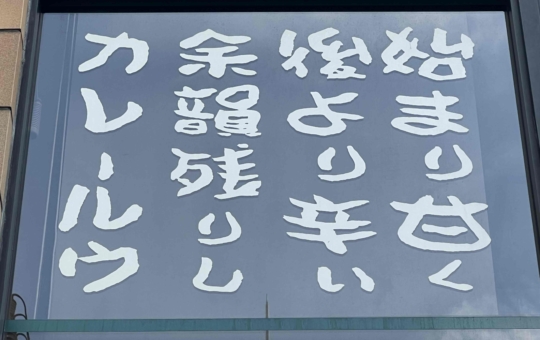 始まり甘く
後より辛い
余韻残りし
カレールウ